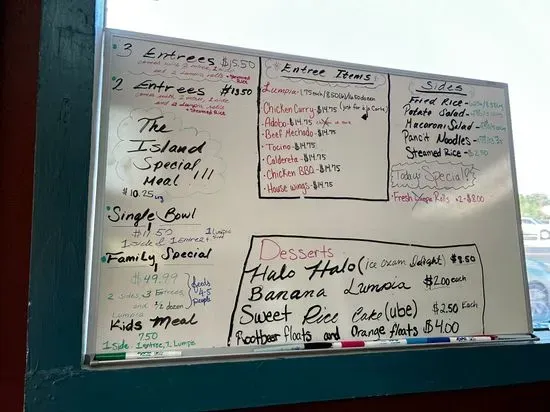 3 Entrees $15.50
and 2 Lumpia rolls + Steamed Rice
2 Entrees $13.50
and 2 Lumpia rolls
+ Steamed Rice
The
Island
Special
Meal !!!
$10.25
Single Bowl
$11.50
1 Side & 1 Entree +
Family Special
$49.99
2 sides, 3 Entrees
and 1/2 dozen
Lumpia
feeds
4-5
people
Kids Meal
7.50
1 Side 1 Entree, 2 Lumpia
Entree Items:
Lumpia-1.75 each/
Chicken Curry-$14.75
Adobo-$14.75
Beef Mechado-$14.75
Tocino-$14.75
Caldereta-$14.75
Chicken BBQ-$14.75
House wings-$14.75
Sides
Fried Rice-
Potato Salad-
Macaroni Salad-
Pancit Noodles-
Steamed Rice-$2.50
Today Special
Fresh Lumpia Rolls x2-$8.00
Desserts
Halo Halo (ice cream delight) $8.50
Banana Lumpia $2.00 each
Sweet Rice Cake (ube) $2.50 Each
Rootbeer floats and Orange floats $4.00